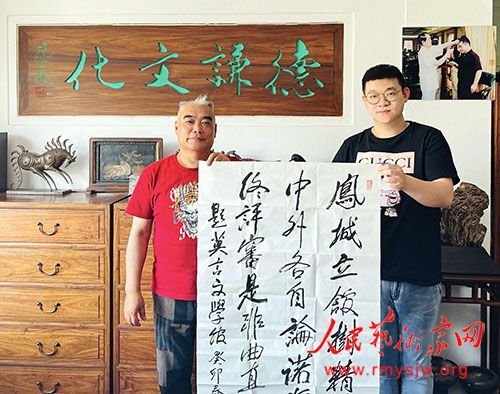 德謙文化
鳳城立館樹精
中外各自論諾
终評審是非曲直
題莫言文學館 癸卯春
GUCCI
人民藝術家网
www.rmysjw.org